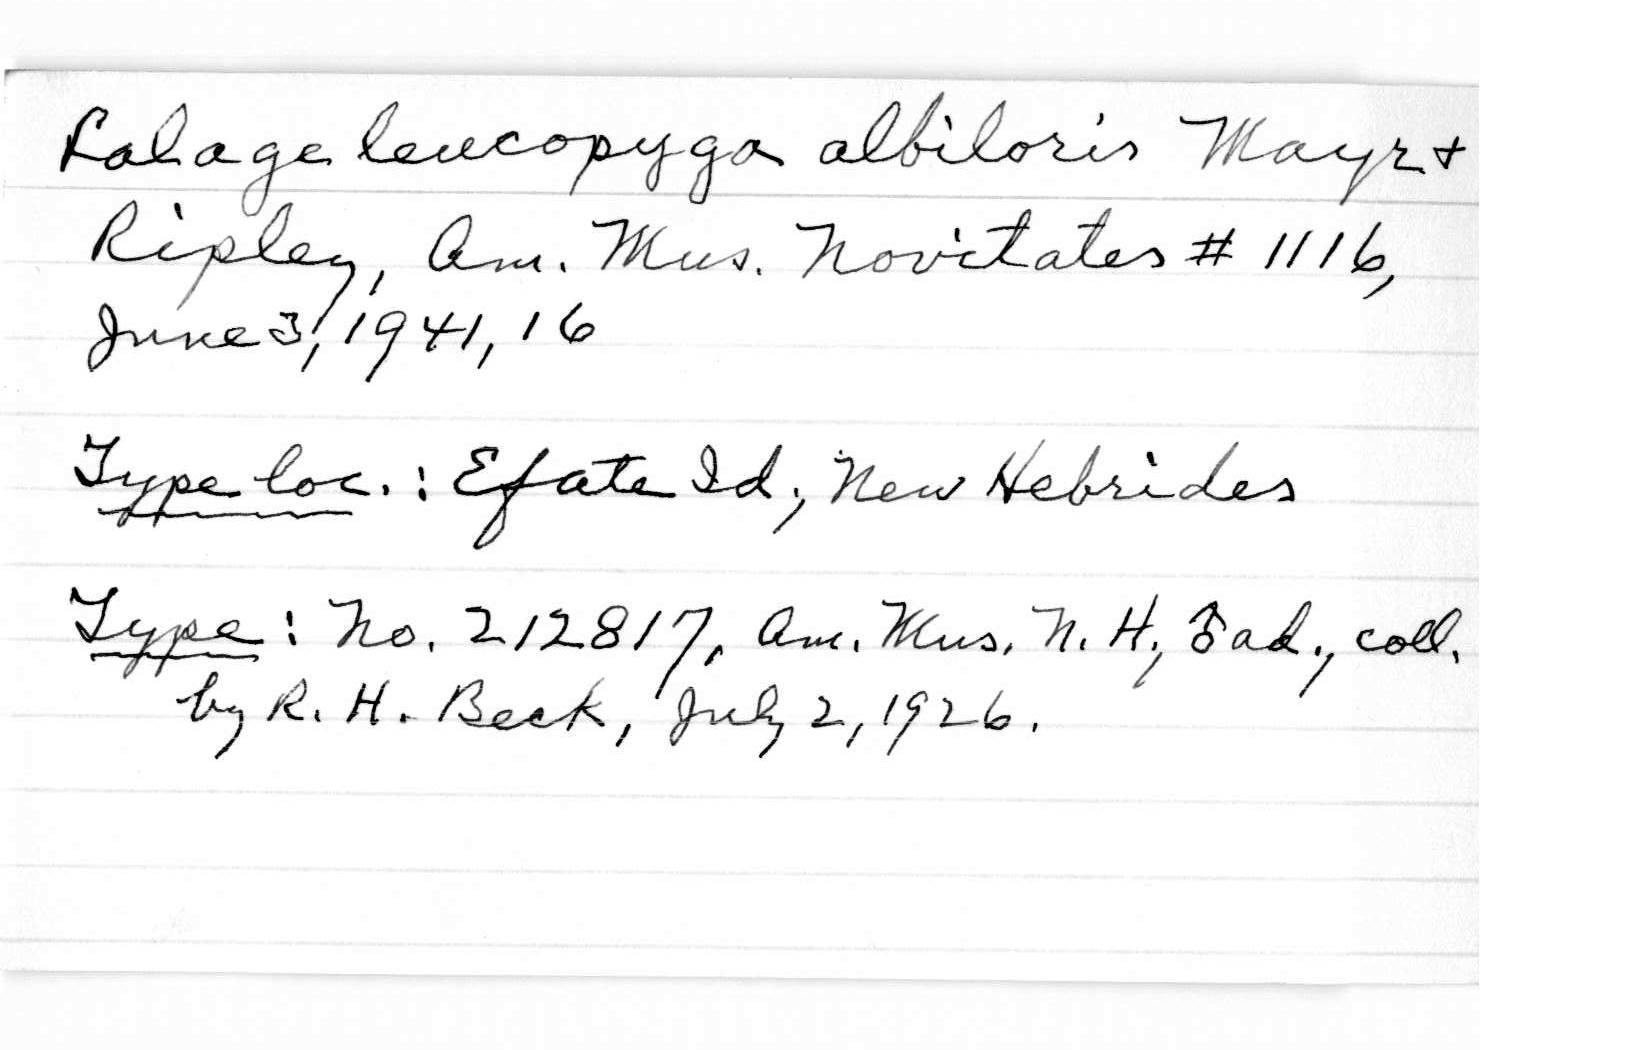 Lalage leucopyga albiloris Mayr +
Ripley, Am. Mus. Novitates # 1116,
June 3, 1941, 16
Type loc. : Efate Id., New Hebrides
Type : No. 212817, Am. Mus. N. H., ♂ ad., coll.
by R. H. Beck, July 2, 1926.